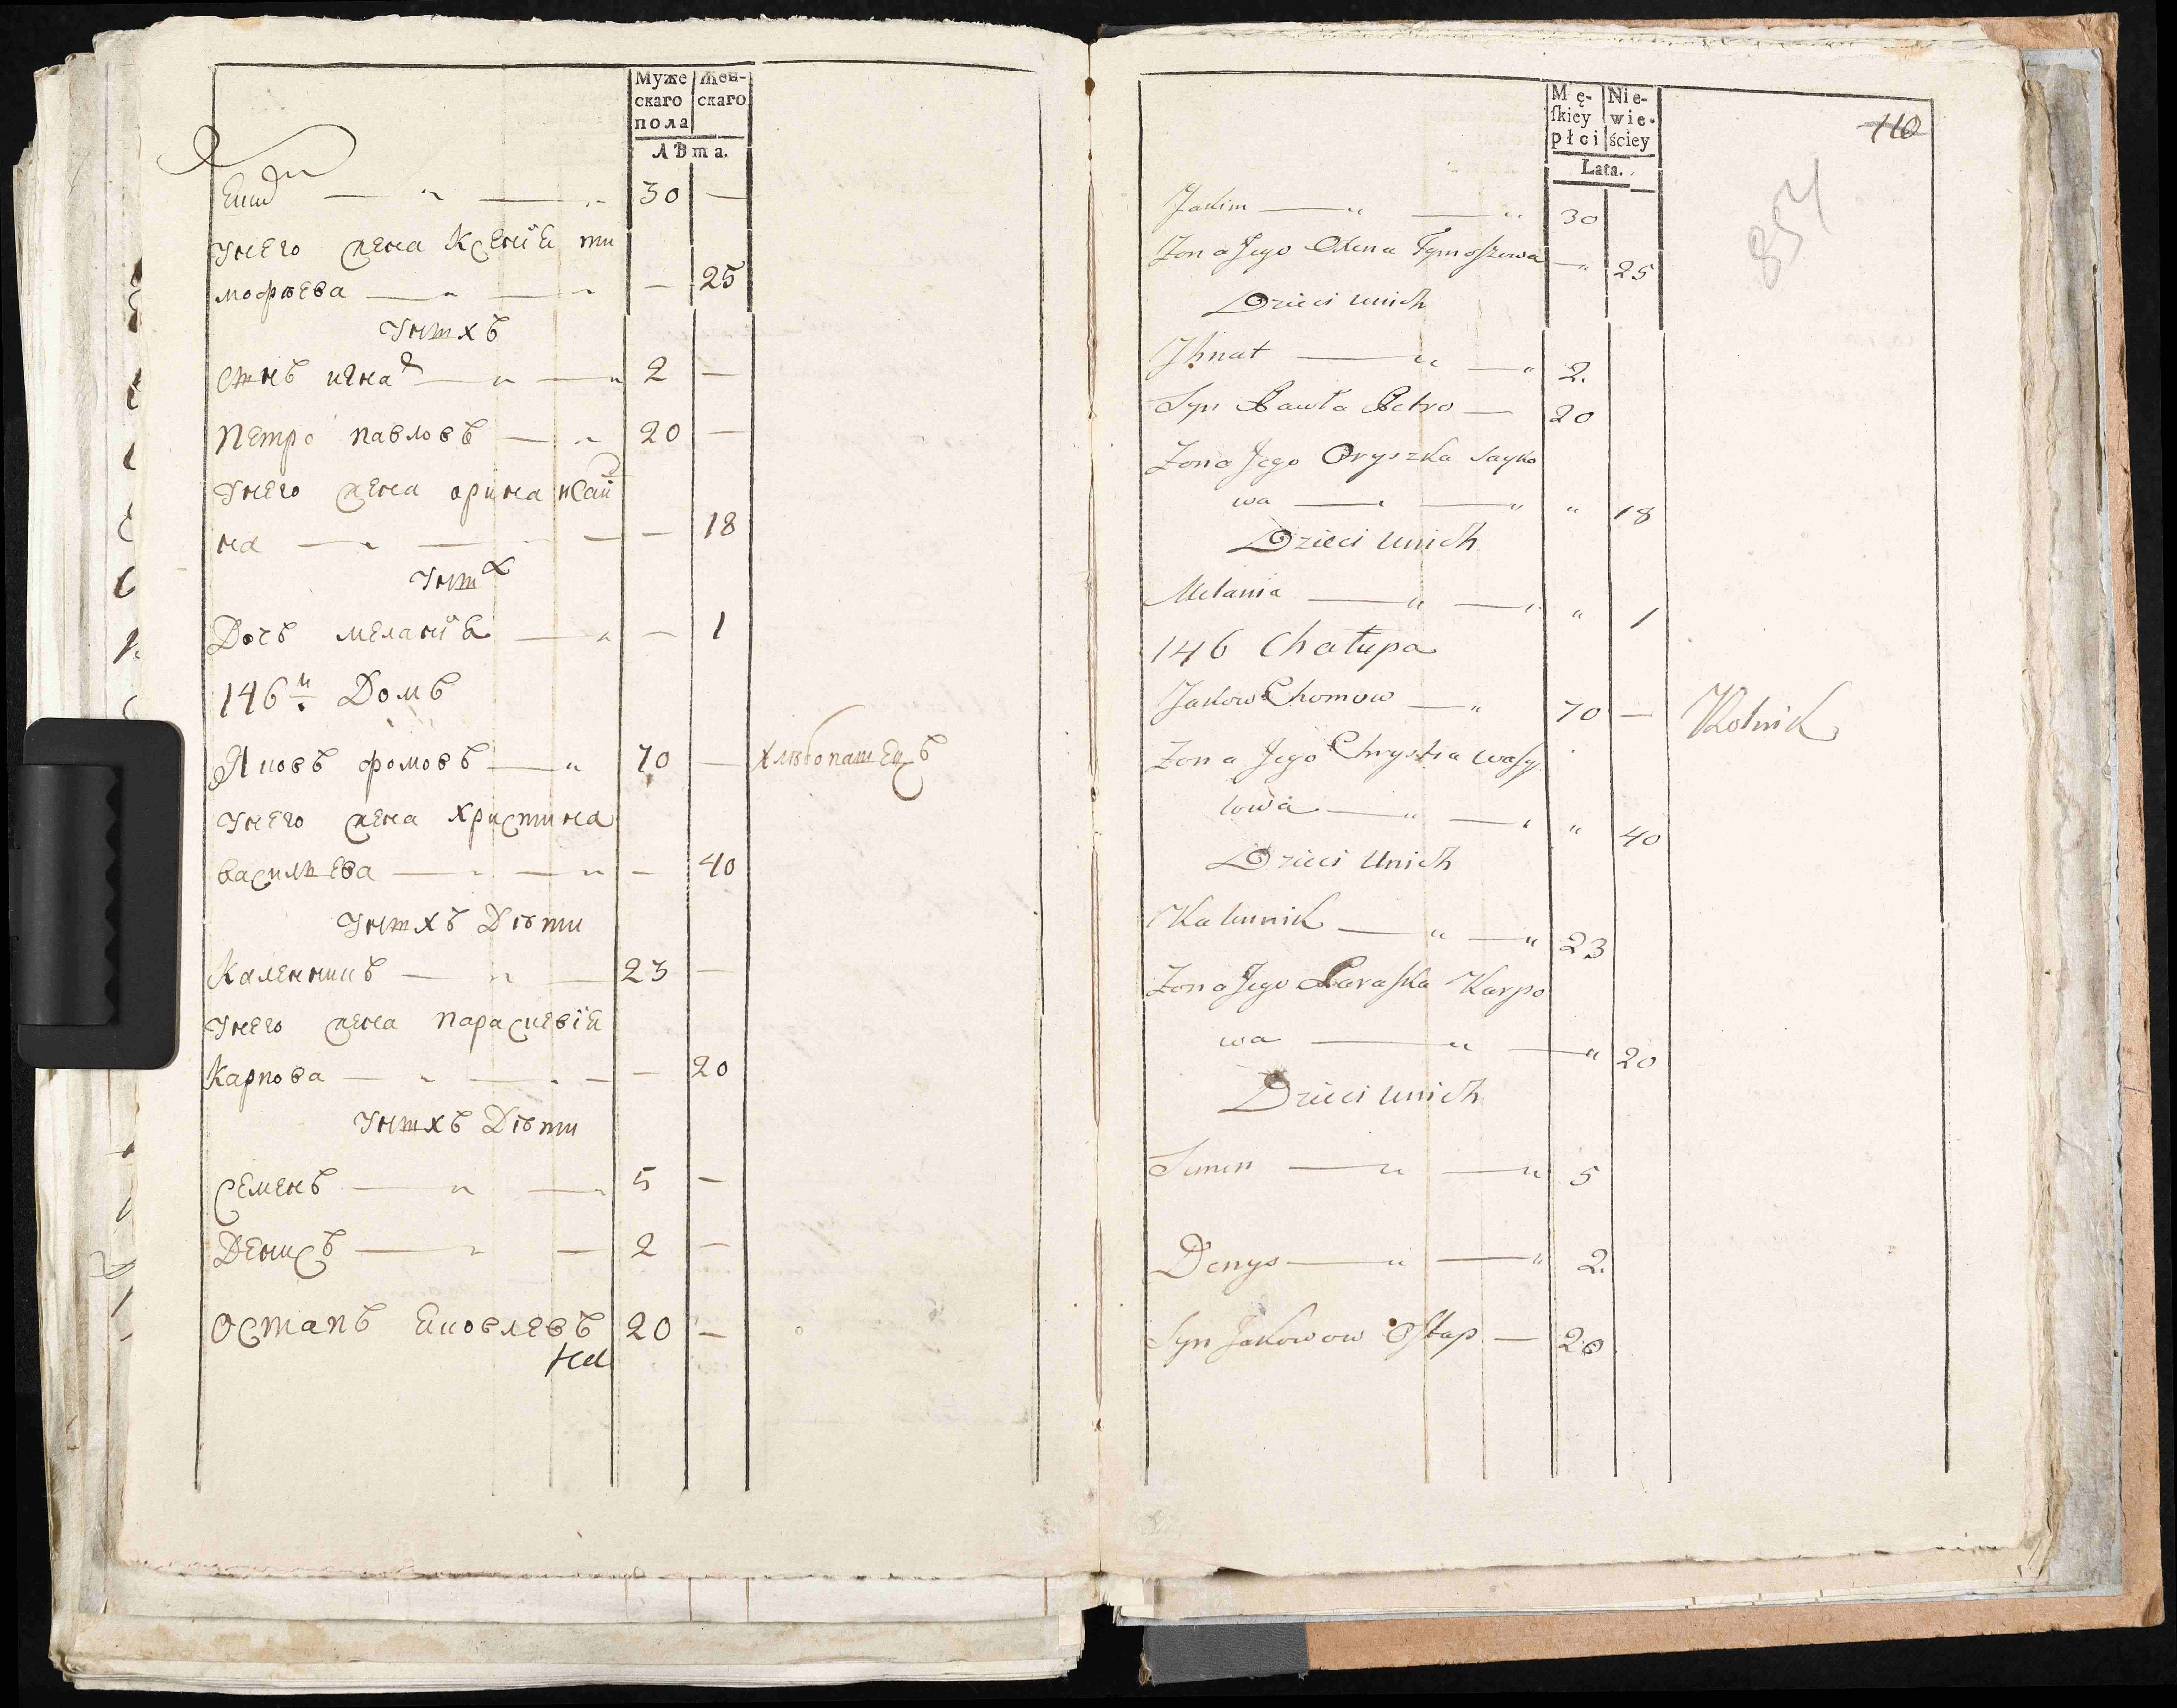 Муже
скаго
пола
Жен-
скаго
Лѣта.
30 —
Унего жена Ксенія ти
мофѣева — 25
Унихъ
Сынъ Игнад 2 —
Петро Павловъ 20 —
Унего жена Орина
на — 18
Уних
Дочъ Меланія — 1
146й Домъ
Яковъ Фомовъ 70 — Хлѣбопашецъ
Унего жена Христина
Васильева — 40
Унихъ Дѣти
Каленникъ 23 —
Унего жена Параскевія
Карпова — 20
Унихъ Дѣти
Семенъ 5 —
Денисъ 2 —
Остапъ Яковлевъ 20 —
На
Mę-
ſkiey
płci
Nie-
wie-
ściey
Lata.
110
854
Jakim 30
Zona Jego Oxena Tymoszowa 25
Dzieci unich
Jhnat 2.
Syn Pawła Petro 20
Zona Jego Oryszka Sayko
wa 18
Dzieci unich
Melania 1
146 Chałupa
Jakow Chomow 70 — Rolnik
Zona Jego Chrystia Wasy
lowa 40
Dzieci Unich
Kalennik 23
Zona Jego Paraſka Karpo
wa 20
Dzieci unich
Semen 5
Denys 2.
Syn Jakowow Oſtap 20